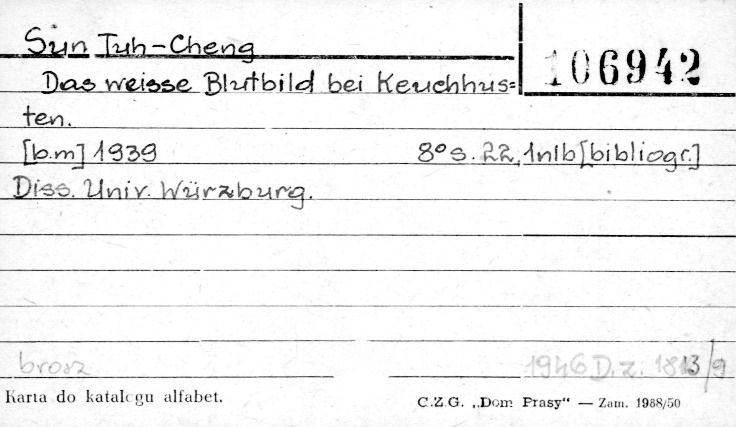 Sun Tuh-Cheng
106942
Das weisse Blutbild bei Keuchhus=
ten.
[b.m] 1939 8° s. 22, 1nlb [bibliogr.]
Diss. Univ. Würzburg.
brosz 1946 D.z. 1813/9
Karta do katalogu alfabet. C.Z.G. „Dom Prasy“ — Zam. 1988/50